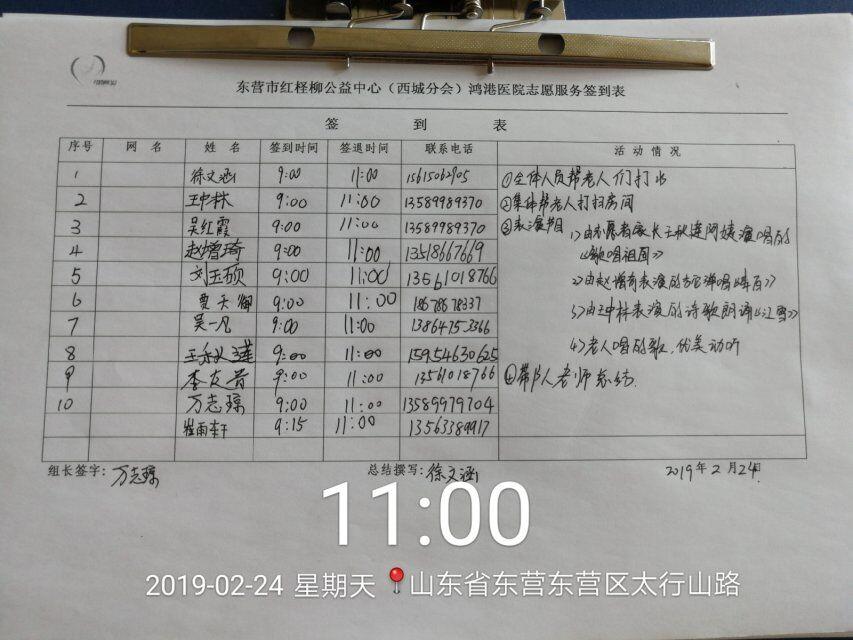 东营市红柽柳公益中心（西城分会）鸿港医院志愿服务签到表
签 到 表
序号 网 名 姓 名 签到时间 签退时间 联系电话 活 动 情 况
1 徐文涵 9:00 11:00 15615062905
2 王中林 9:00 11:00 13589989370
3 吴红霞 9:00 11:00 13589989370
4 赵增琦 9:00 11:00 13518667669
5 刘玉硕 9:00 11:00 13561018766
6 贾天御 9:00 11:00 18678678337
7 吴一凡 9:00 11:00 13864753366
8 王秋莲 9:00 11:00 15954630625
9 李友青 9:00 11:00 13561018766
10 万志琼 9:00 11:00 13589979704
崔雨轩 9:15 11:00 13563389917
①全体人员帮老人们打水
②集体帮老人打扫房间
③表演节目
1)由志愿者家长王秋莲阿姨演唱的
《歌唱祖国》
2)由赵增琦表演的吉它弹唱
3)由王中林表演的诗歌朗诵《江雪》
4)老人唱的歌，优美动听
④带队人老师总结.
组长签字：万志琼 总结撰写：徐文涵 2019年2月24日
11:00
2019-02-24 星期天 山东省东营东营区太行山路